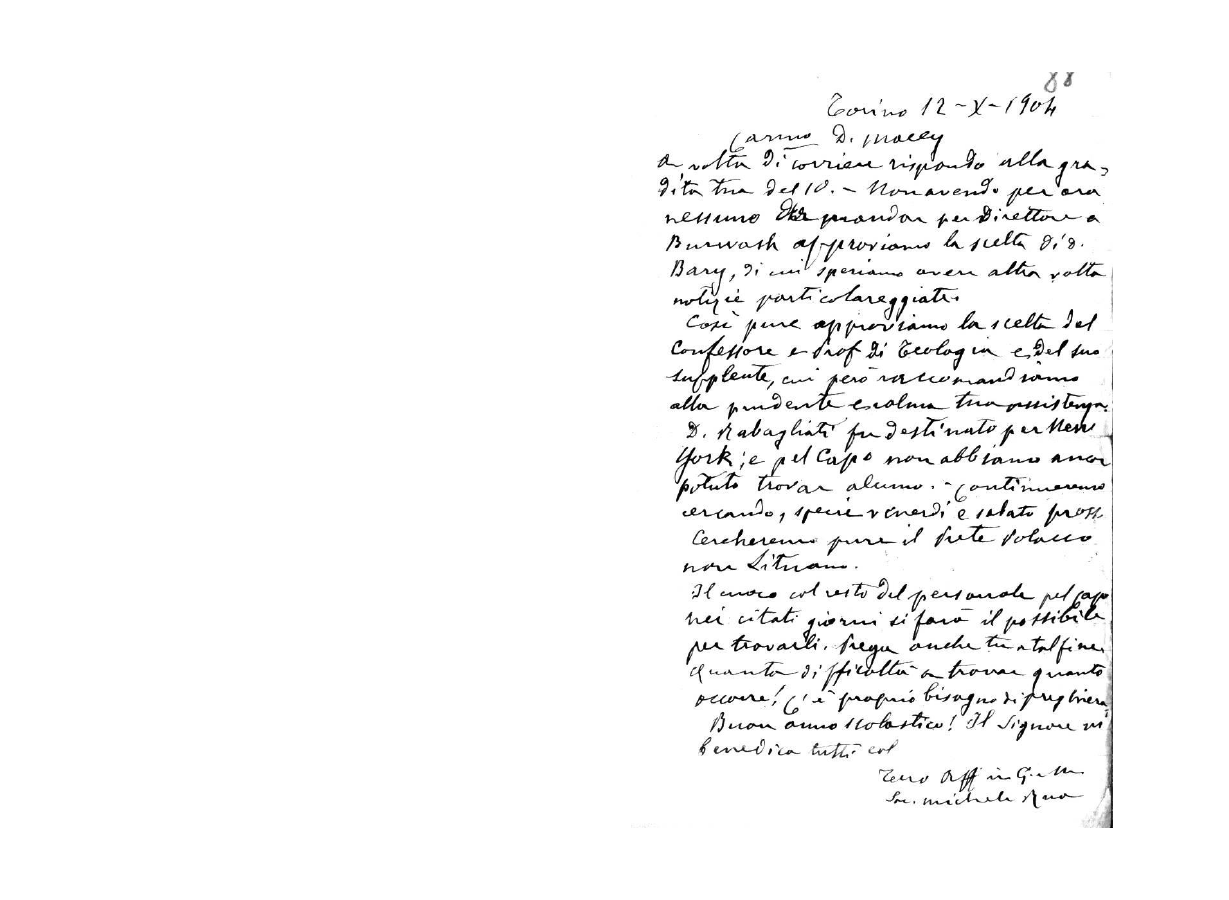 88
Torino 12-X-1904
Carmo D. Macey
a volta di corriere rispondo alla gra-
dita tua del 10. - Non avendo per ora
nessuno da mandar per Direttore a
Burwash approviamo la scelta di d.
Bary, di cui speriamo avere altra volta
notizie particolareggiate.
Così pure approviamo la scelta del
Confessore e Prof di Teologia e del suo
supplente, cui però raccomandiamo
alla prudente e calma tua assistenza.
D. Rabagliati fu destinato per New
York; e pel Capo non abbiamo ancor
potuto trovar alcuno. - Continueremo
cercando, specie venerdì e sabato pross.
Cercheremo pure il Prete Polacco
non Lituano.
Il cuoco col resto del personale pel Capo
nei citati giorni si farà il possibile
per trovarli. Prega anche tu a tal fine.
Quanta difficoltà a trovar quanto
occorre! C'è proprio bisogno di preghiera.
Buon anno scolastico! Il Signore vi
benedica tutti col
Tuo Aff in G. e M.
Sac. Michele Rua